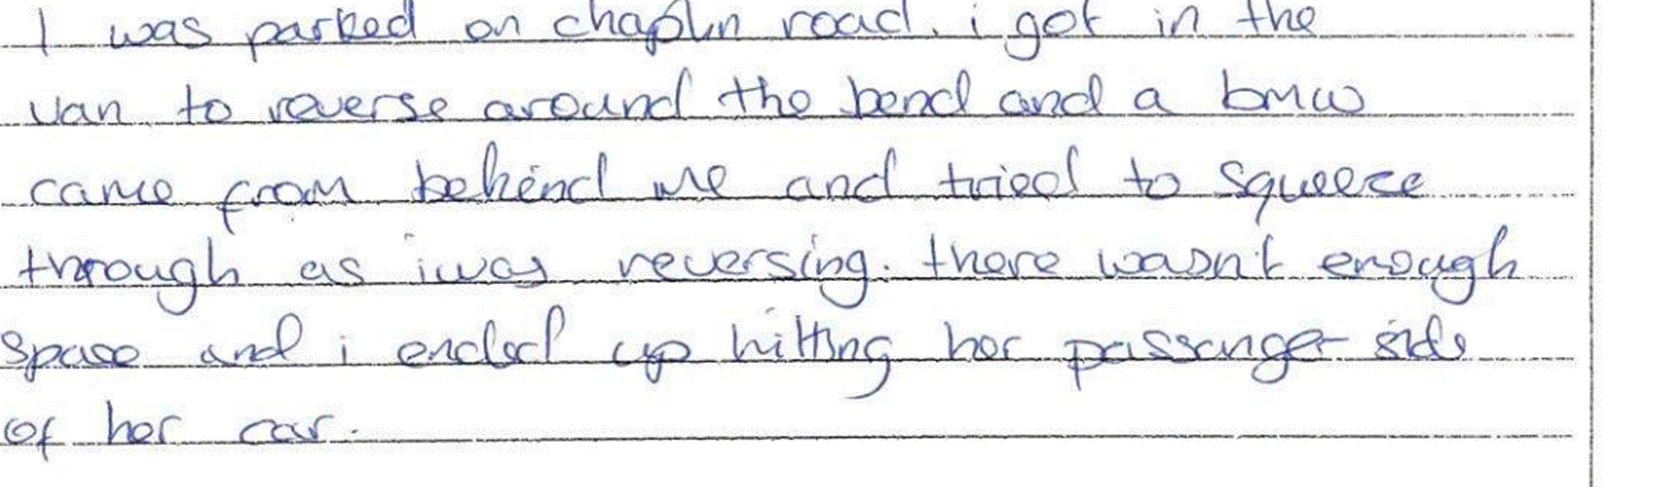 I was parked on chaplin road. i got in the
van to reverse around the bend and a bmw
came from behind me and tried to squeeze
through as i was reversing. there wasn't enough
space and i ended up hitting her passanger side
of her car.